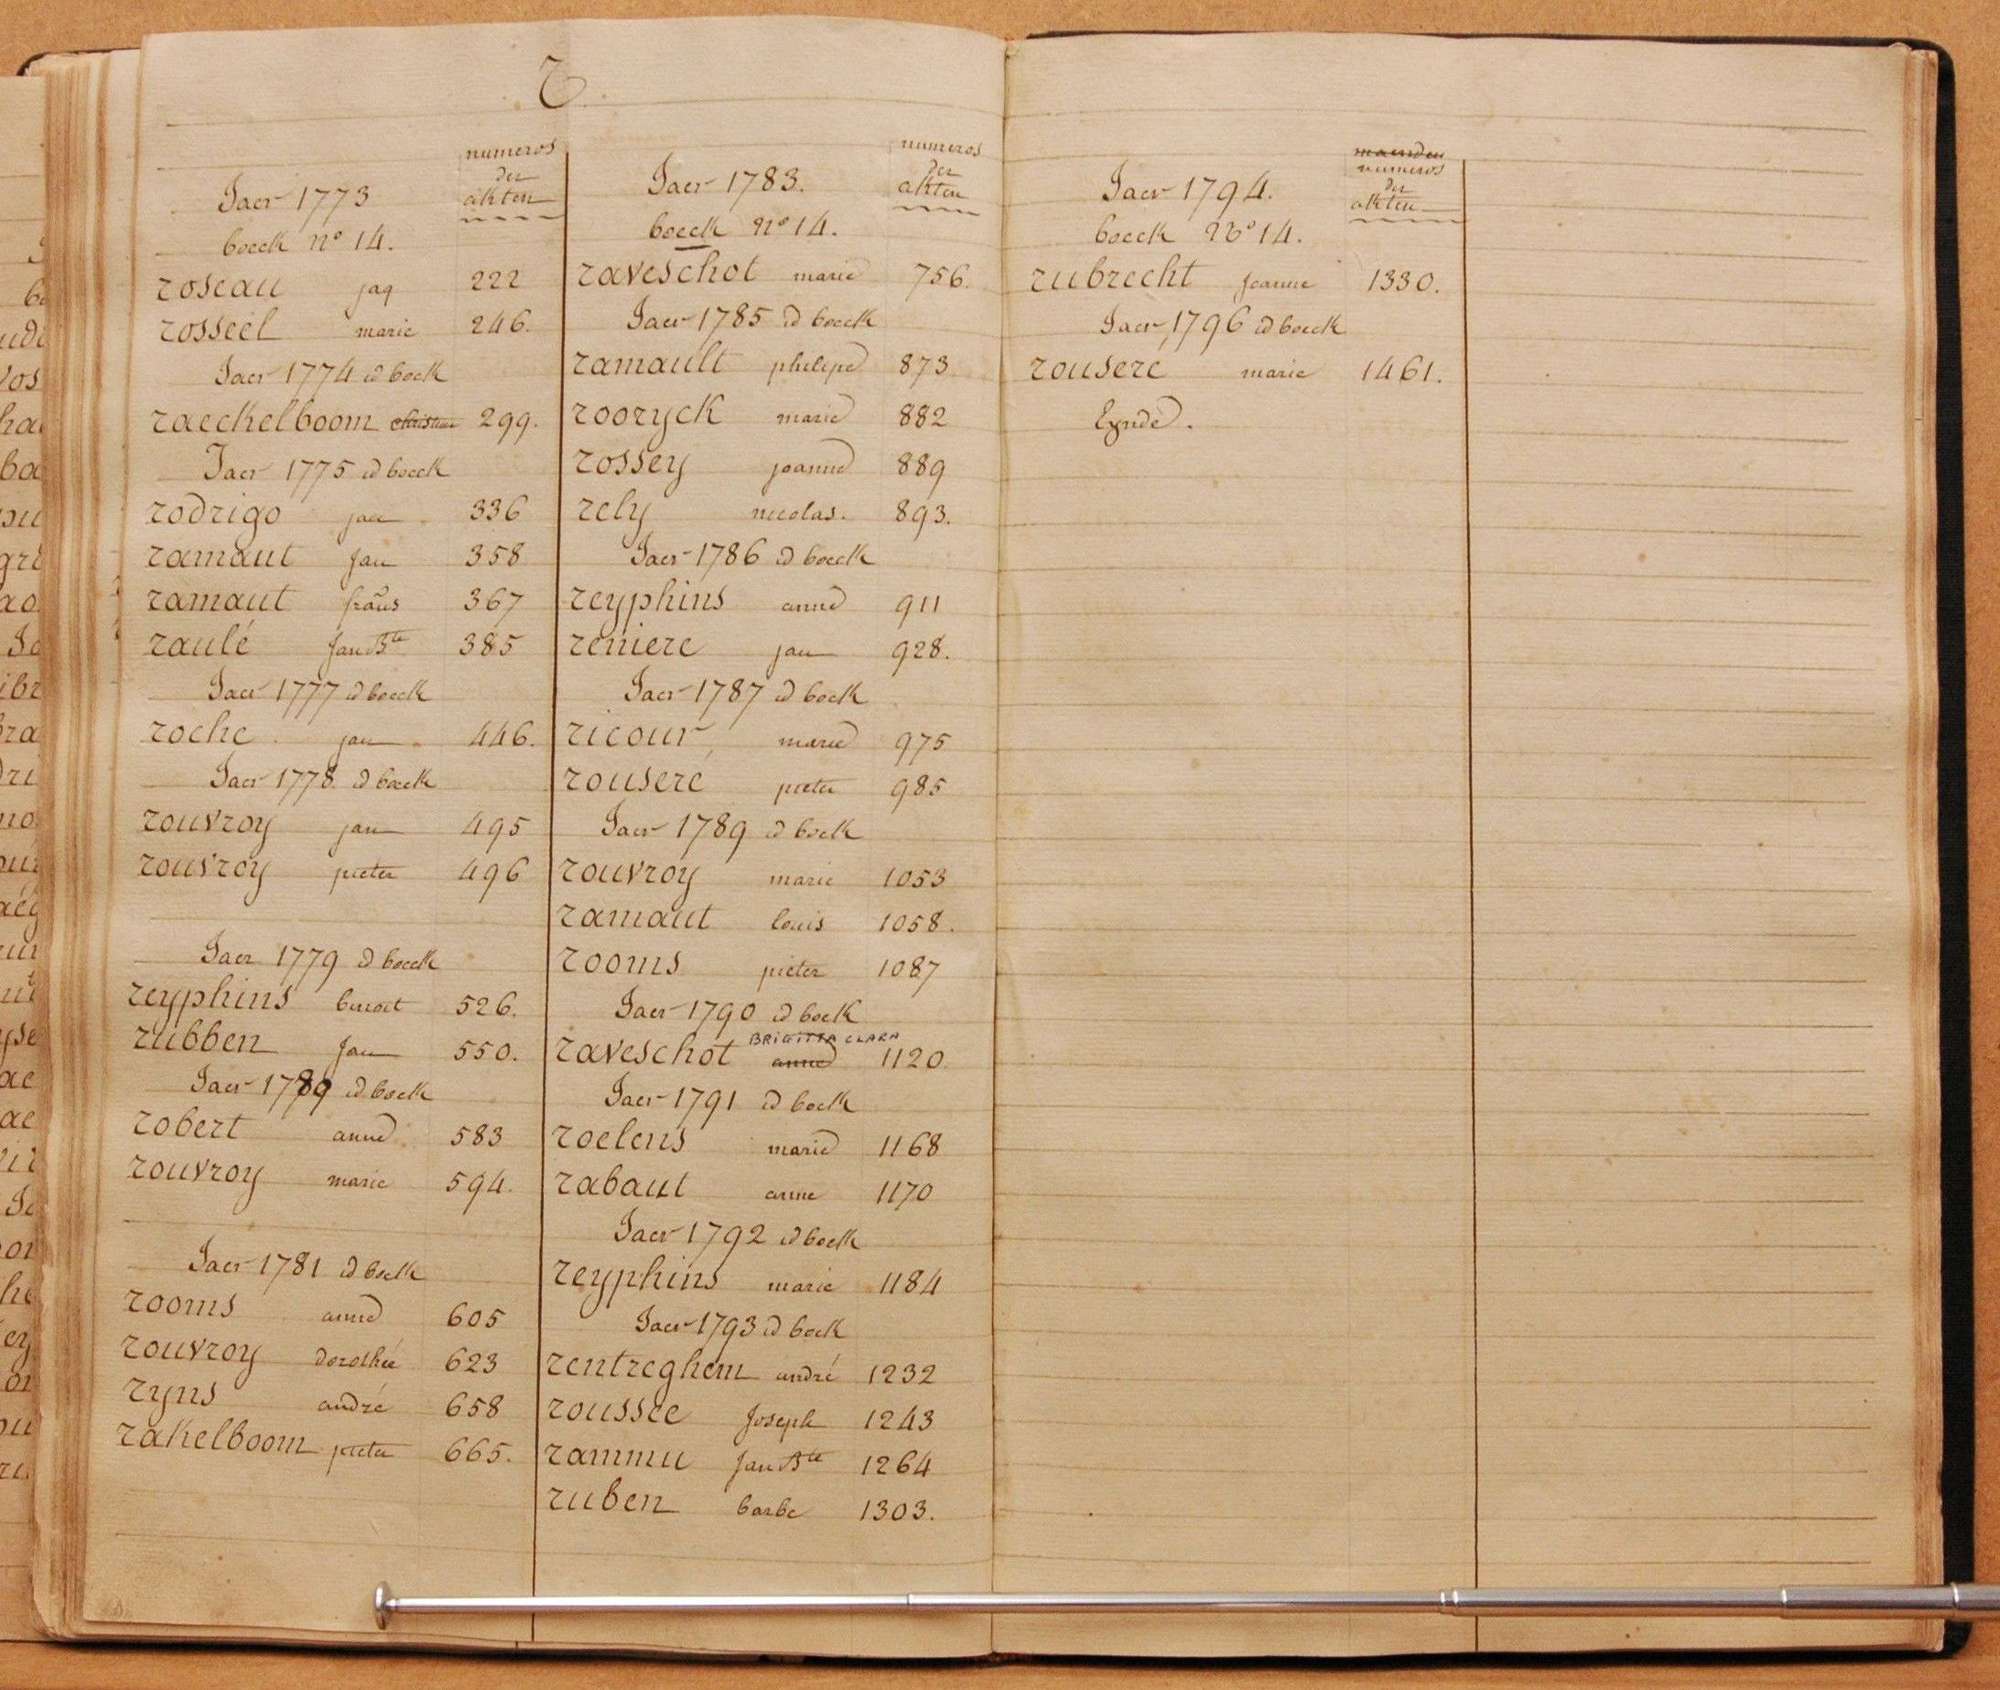 R
numeros
der
akten
Jaer 1773
boeck n° 14.
roseau jaq 222
rosseel marie 246.
Jaer 1774 id boek
raeckelboom christine 299.
Jaer 1775 id boeck
rodrigo jan 336
ramaut Jan 358
ramaut frans 367
raulé Jan Bte 385
Jaer 1777 id boeck
roche jan 446.
Jaer 1778 id boeck
rouvroy jan 495
rouvroy pieter 496
Jaer 1779 id boeck
reyphins benoit 526.
rubben Jan 550.
Jaer id boek
robert anne 583
rouvroy marie 594.
Jaer 1781 id boek
rooms anne 605
rouvroy dorothée 623
ryns andré 658
rakelboom pieter 665.
numeros
der
akten
Jaer 1783.
boeck n° 14.
raveschot marie 756.
Jaer 1785 id boeck
ramault philipe 873
rooryck marie 882
rossey joanne 889
rely nicolas. 893.
Jaer 1786 id boeck
reyphins anne 911
reniere jan 928.
Jaer 1787 id boek
ricour marie 975
rouseré pieter 985
Jaer 1789 id boek
rouvroy marie 1053
ramaut louis 1058.
rooms pieter 1087
Jaer 1790 id boek
BRIGITTA CLARA
raveschot anne 1120
Jaer 1791 id boek
roelens marie 1168
rabaut anne 1170
Jaer 1792 id boek
reyphins marie 1184
Jaer 1793 id boek
rentreghem andré 1232
roussee Joseph 1243
rammu Jan Bte 1264
ruben barbe 1303.
maenden
numeros
der
akten
Jaer 1794.
boeck N° 14.
rubrecht Joanne 1330.
Jaer 1796 id boeck
rousere marie 1461.
Eynde.